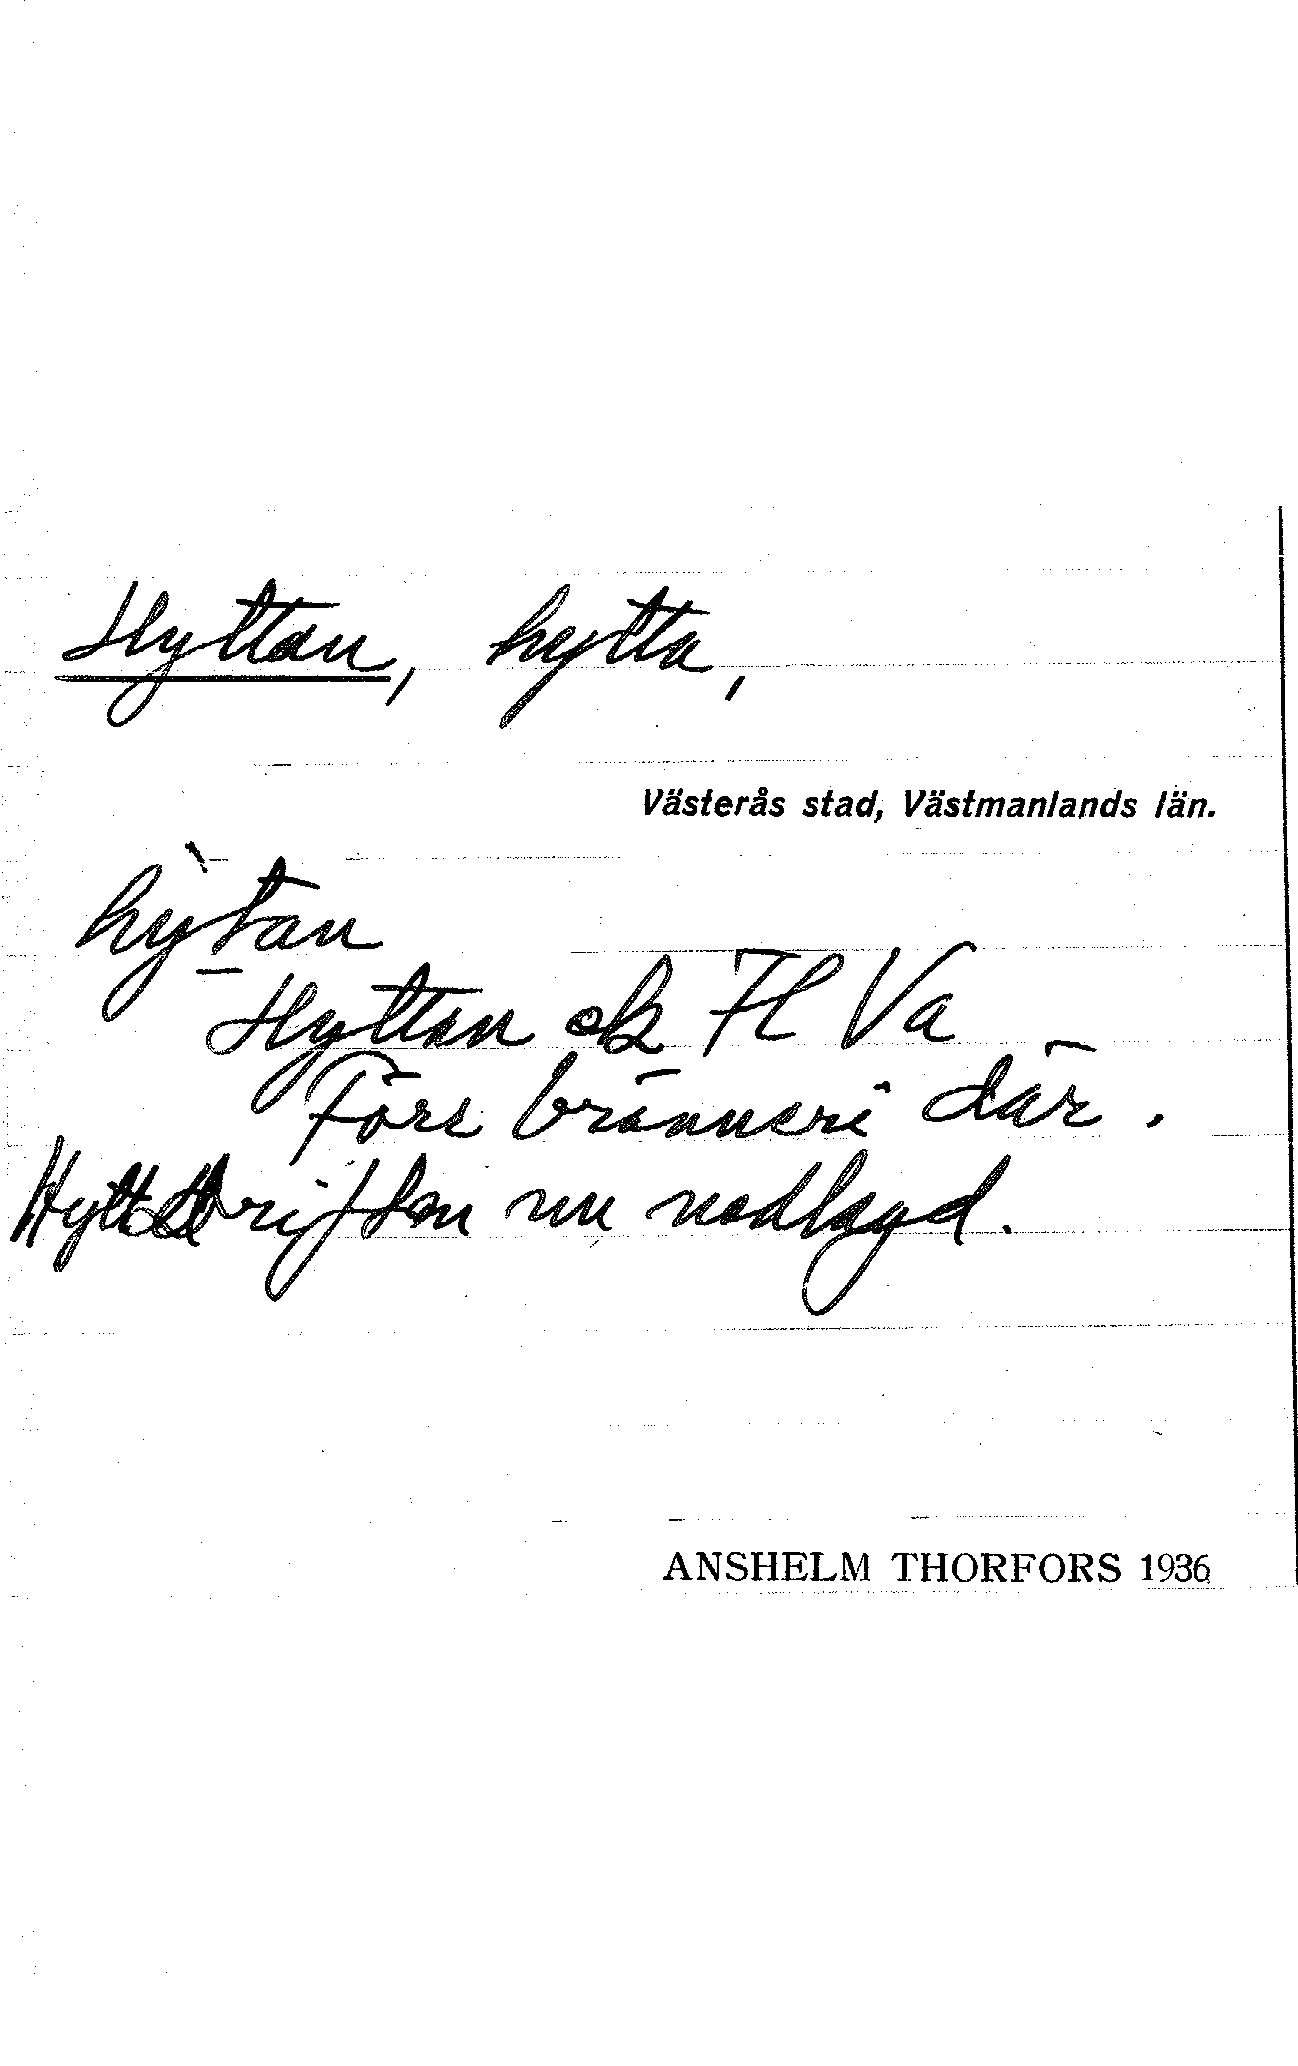 Hyttan, hytta,
Västerås stad, Västmanlands län.
hy̆̀t̠an
Hyttan ek FH Va
Förr bränneri där.
Hyttdriften nu nedlagd.
ANSHELM THORFORS 1936